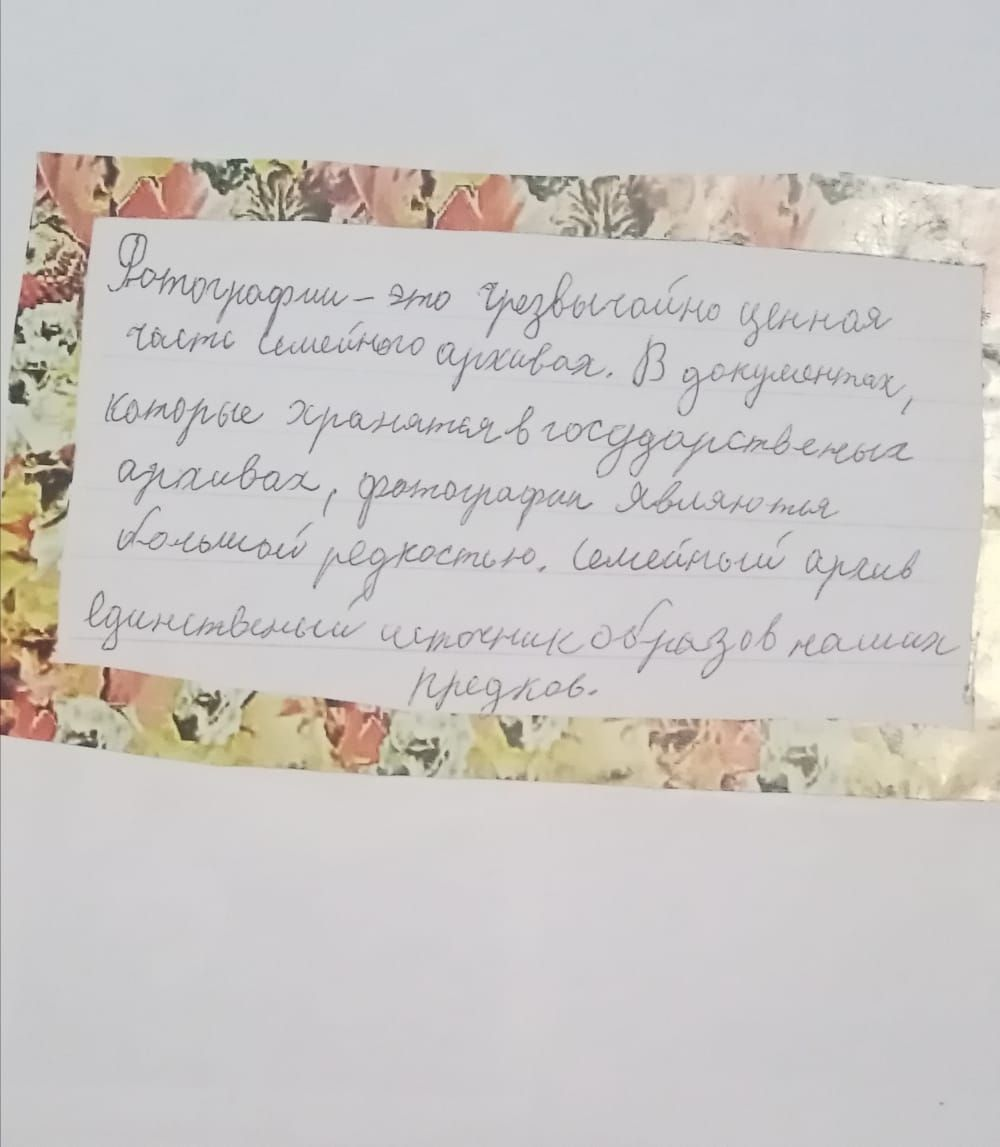 Фотографии – это чрезвычайно ценная
часть семейного архивах. В документах,
которые хранятся в государственых
архивах, фотографии являются
большой редкостью. Семейный архив
единственый источник образов наших
предков.